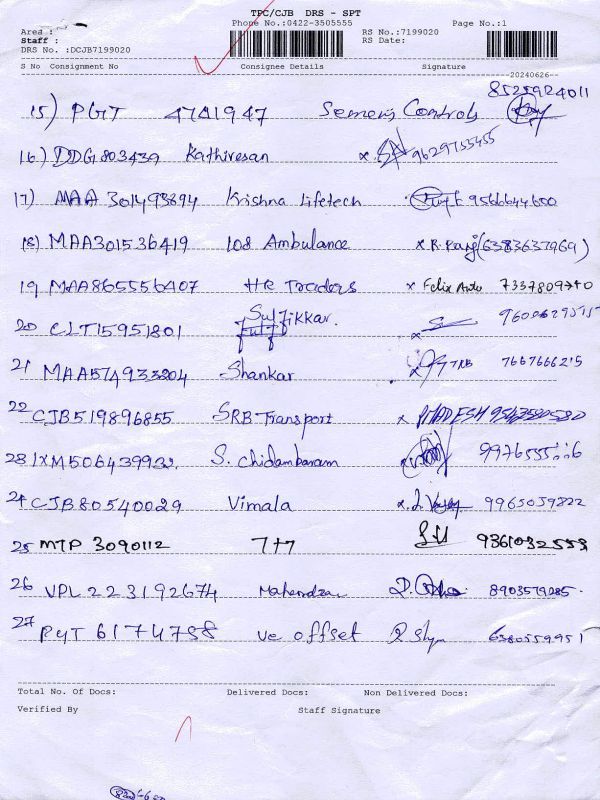 TPC/CJB DRS - SPT
Phone No.:0422-3505555 Page No.:1
Area :
Staff : RS No.:7199020
DRS No. :DCJB7199020 RS Date:
S No Consignment No Consignee Details Signature
20240626
15) PGT 4741947 Semens Controls 8525924011
16) DDG803439 Kathiresan x. 9629755455
17) MAA 301493894 Krishna Lifetech 9566644600
18) MAA301536419 108 Ambulance x R. Raj (6383637969)
19 MAA865556407 HR Traders x Felix Auto 7337809740
20 CLT15951801 Sulfikkar. x
21 MAA574933804 Shankar x TRB 766766215
22 CJB519896855 SRB Transport x MADESH
23 IXM506439932. S. Chidambaram x
24 CJB80540029 Vimala x. 9965039822
25 MTP 3090112 7+7 9361032553
26 VPL 223192674 Mahendran 8903579285.
27 PYT 6174798 ve offset R Shyn 6380559951
Total No. Of Docs: Delivered Docs: Non Delivered Docs:
Verified By Staff Signature